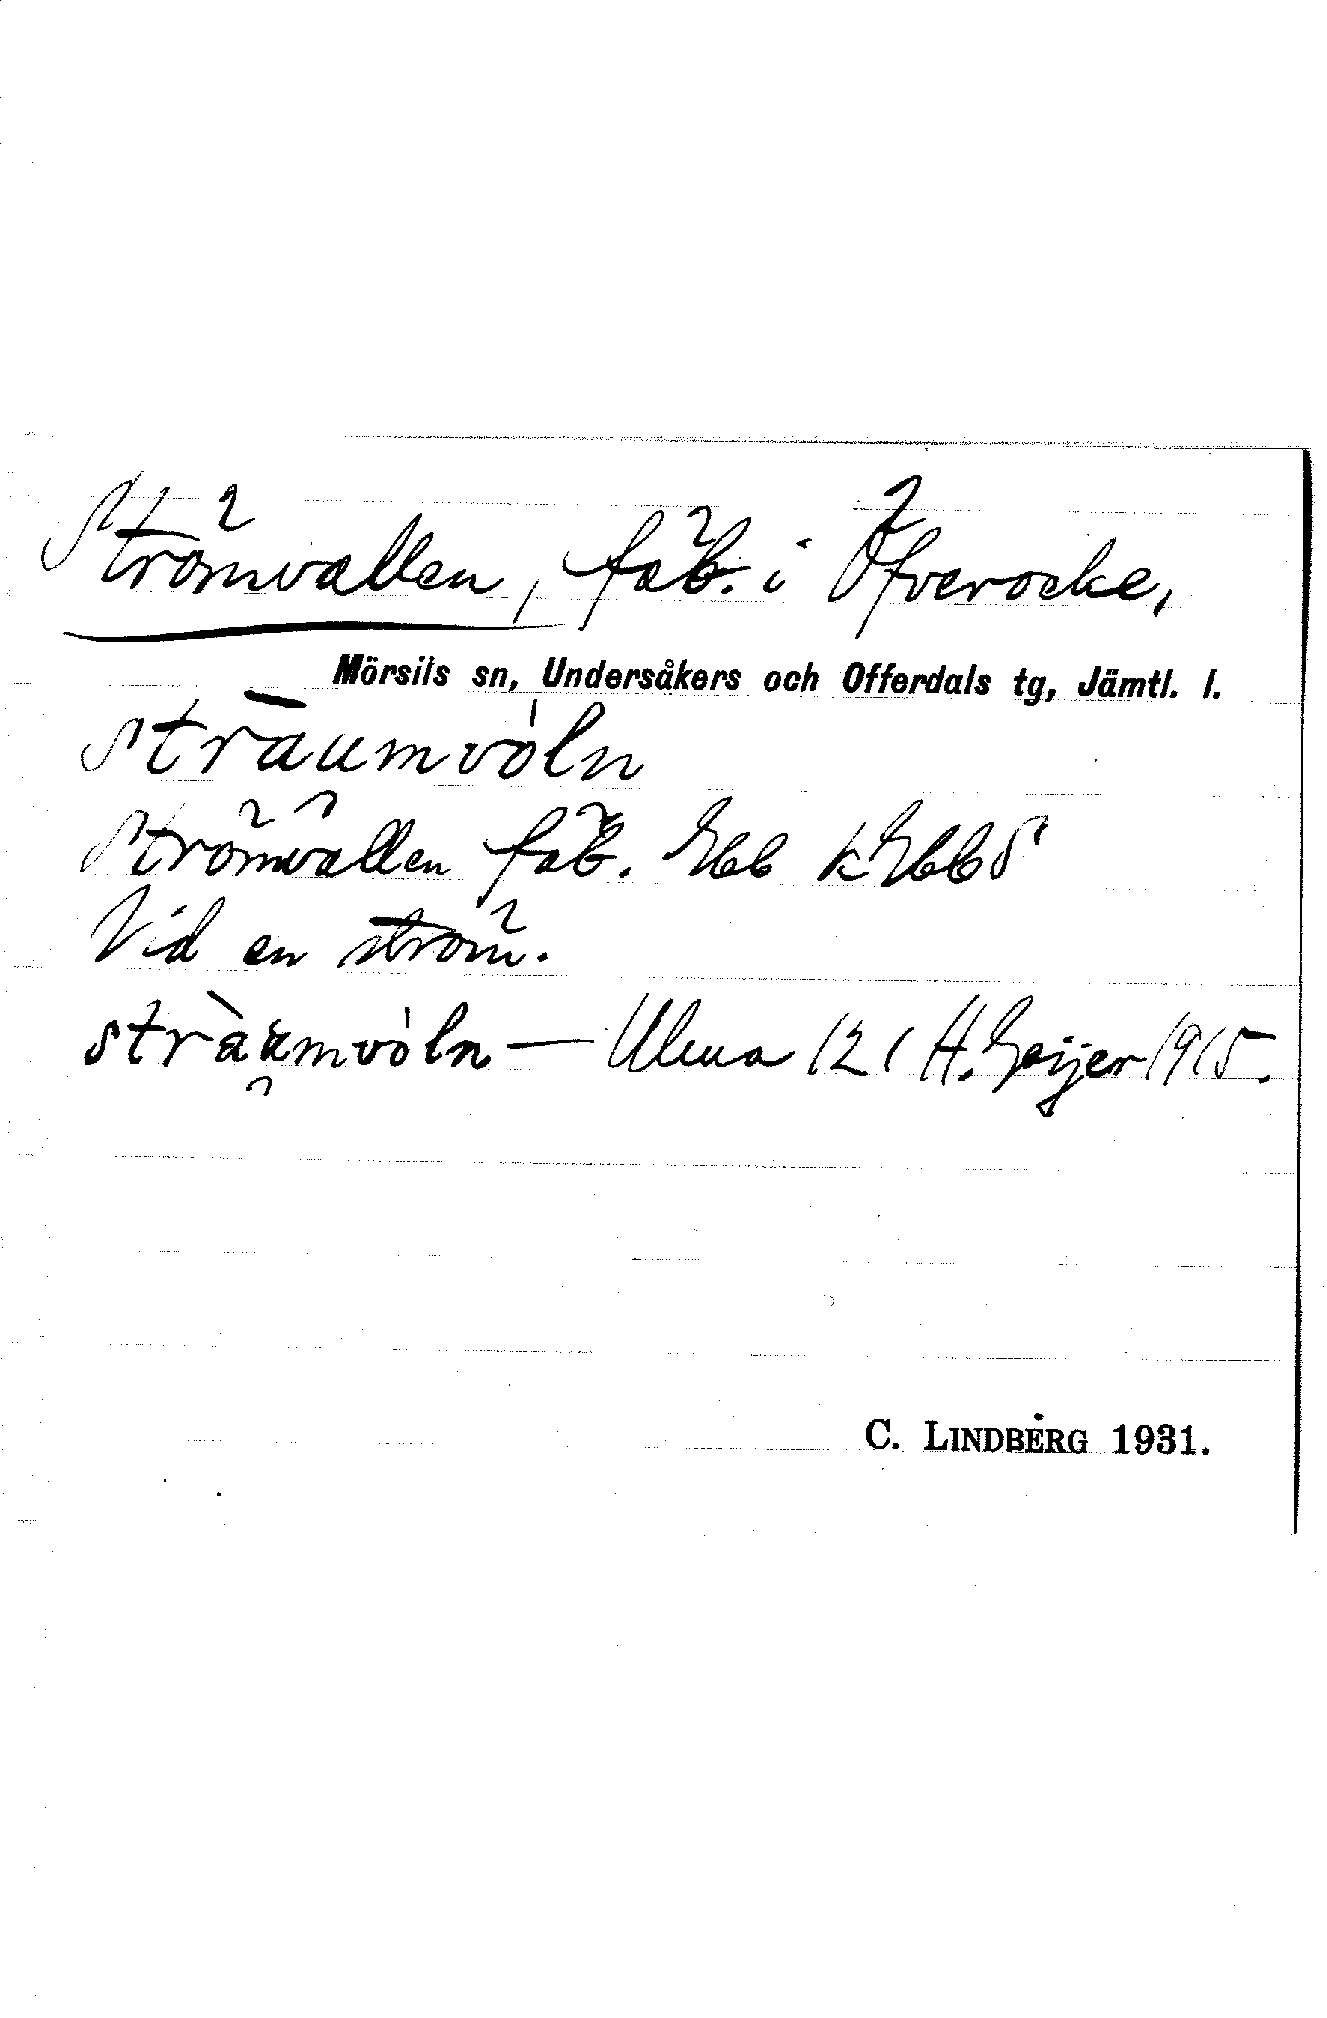 Strömvallen, fäb. i Öfverocke,
Mörsils sn, Undersåkers och Offerdals tg, Jämtl. l.
stràumvòln
Strömvallen fäb. Ebb kEbbS
Vid en ström.
stràumvòln — Ulma 121 H. Geijer 1915.
C. LINDBERG 1931.